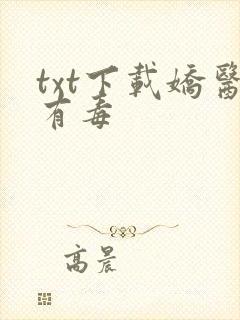 txt下載嬌醫
有毒
高晨